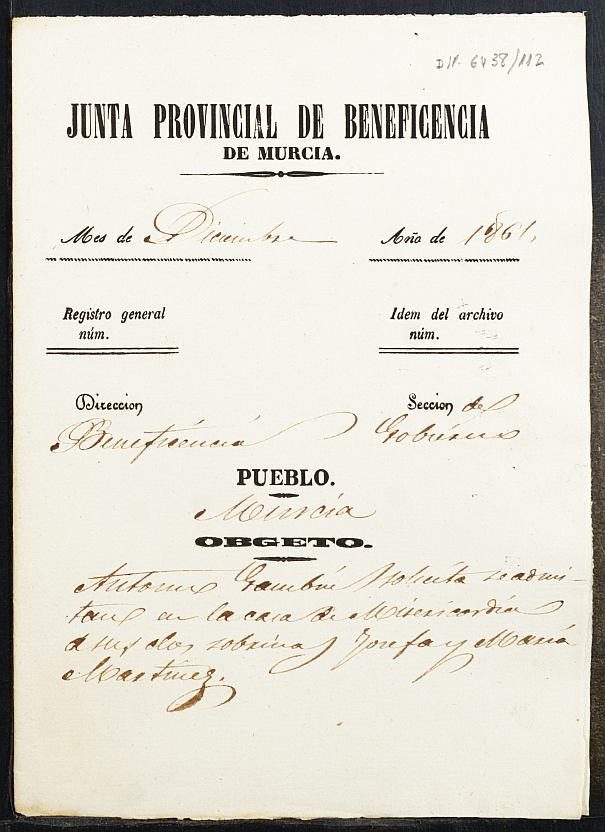 DIP. 6438/112
JUNTA PROVINCIAL DE BENEFICENCIA
DE MURCIA.
Mes de Diciembre Año de 1861,
Registro general
núm.
Idem del archivo
núm.
Direccion
Beneficéncia
Seccion del
Gobierno
PUEBLO.
Murcia
OBGETO.
Antonio solicita se admi-
tan en la casa de Misericordia
a sus dos sobrinas Josefa y María
Martinez.